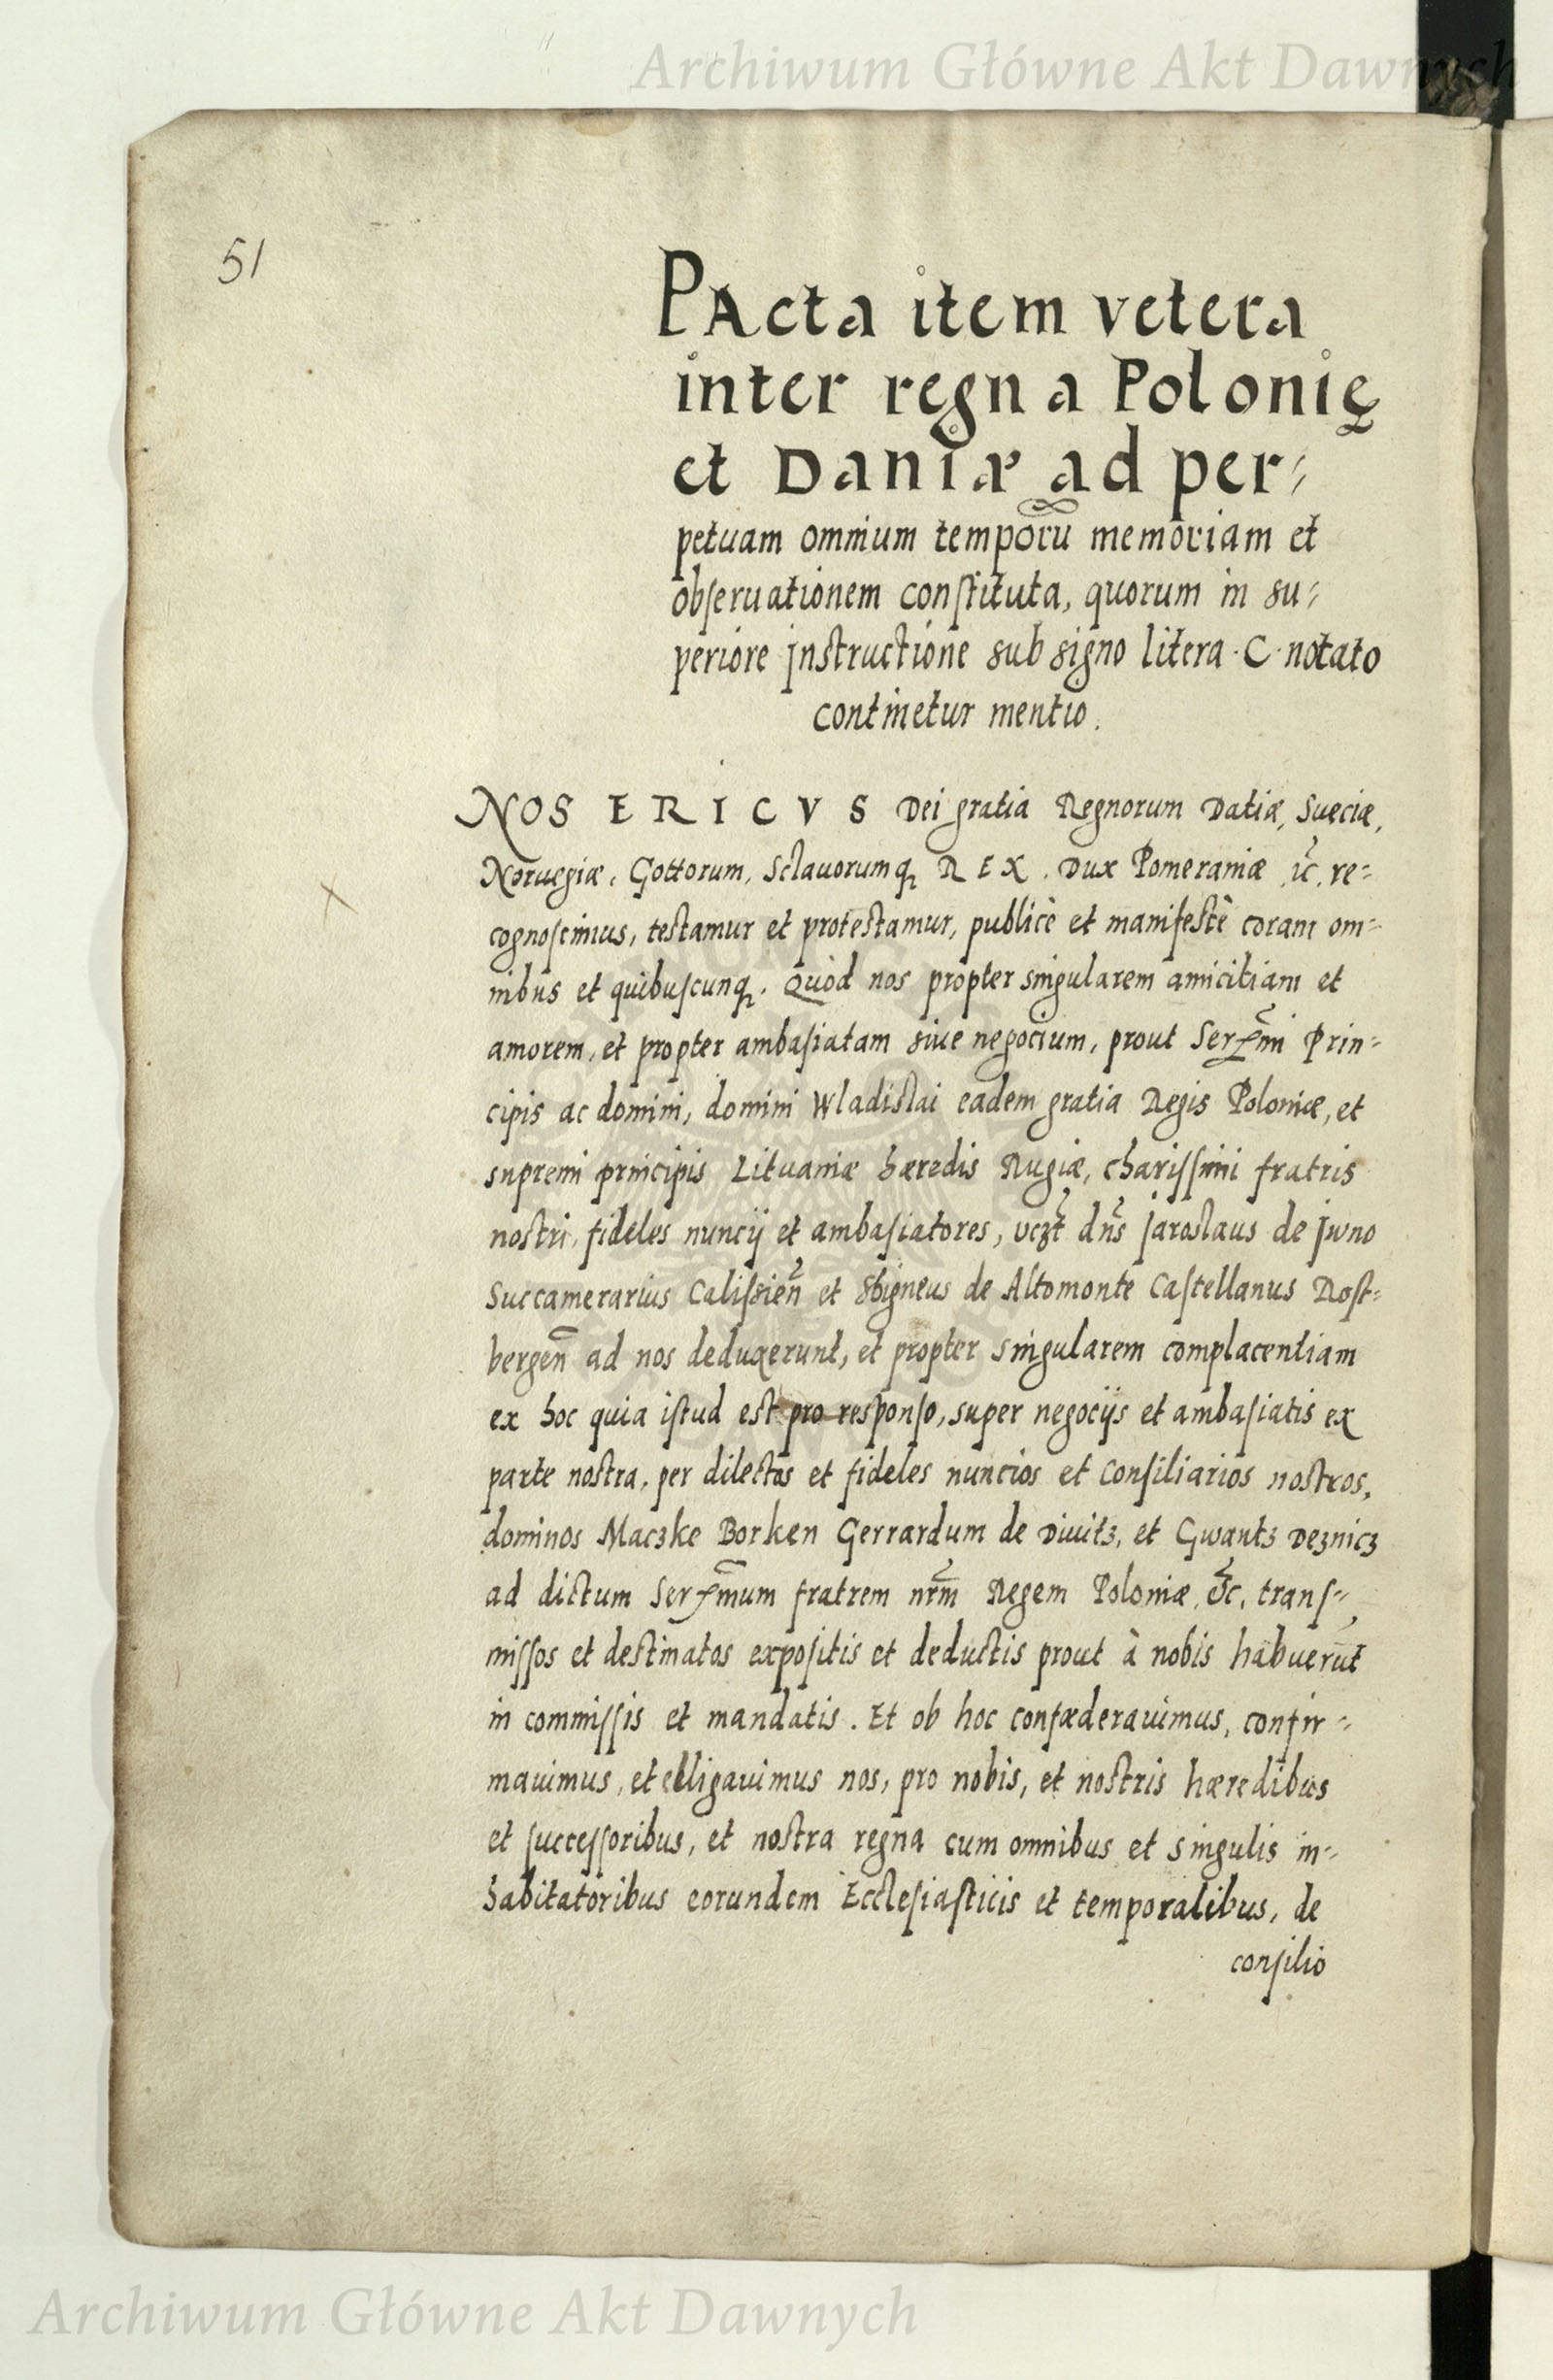 Archiwum Główne Akt Dawnych
51
PActa item vetera
inter regna Polonię
et Daniæ ad per⸗
petuam omnium temporū memoriam et
obseruationem constituta, quorum in su⸗
periore jnstructione sub signo litera · C · notato
continetur mentio.
NOS ERICVS Dei gratia Regnorum Datiæ, Sueciæ,
Noruegiæ, Gottorum, Sclauorumq; REX. Dux Pomeraniæ, ꝛc. re⸗
cognoscimus, testamur et protestamur, publicè et manifestè coram om⸗
nibus et quibuscunq;. Quòd nos propter singularem amicitiam et
amorem, et propter ambasiatam siue negocium, prout Serꝫ̃mi Prin⸗
cipis ac domini, domini Wladislai eadem gratia Regis Poloniæ, et
supremi principis Lituaniæ hæredis Rugiæ, charissimi fratris
nostri, fideles nuncij et ambasiatores, vcꝫt dñs jaroslaus de Jwno
Succamerarius Calissien̄ et Sbigneus de Altomonte Castellanus Rost⸗
bergen̄ ad nos deduxerunt, et propter singularem complacentiam
ex hoc quia istud est pro responso, super negocijs et ambasiatis ex
parte nostra, per dilectos et fideles nuncios et Consiliarios nostros,
dominos Maczke Borken Gerrardum de Diuitz, et Gwantz Deznicz
ad dictum Serꝫ̃mum fratrem nrm̃ Regem Poloniæ, ꝛc, trans⸗
missos et destinatos expositis et deductis prout à nobis habuerūt
in commissis et mandatis. Et ob hoc confæderauimus, confir⸗
mauimus, et elligauimus nos, pro nobis, et nostris hæredibus
et successoribus, et nostra regna cum omnibus et singulis in⸗
habitatoribus eorundem Ecclesiasticis et temporalibus, de
consilio
Archiwum Główne Akt Dawnych